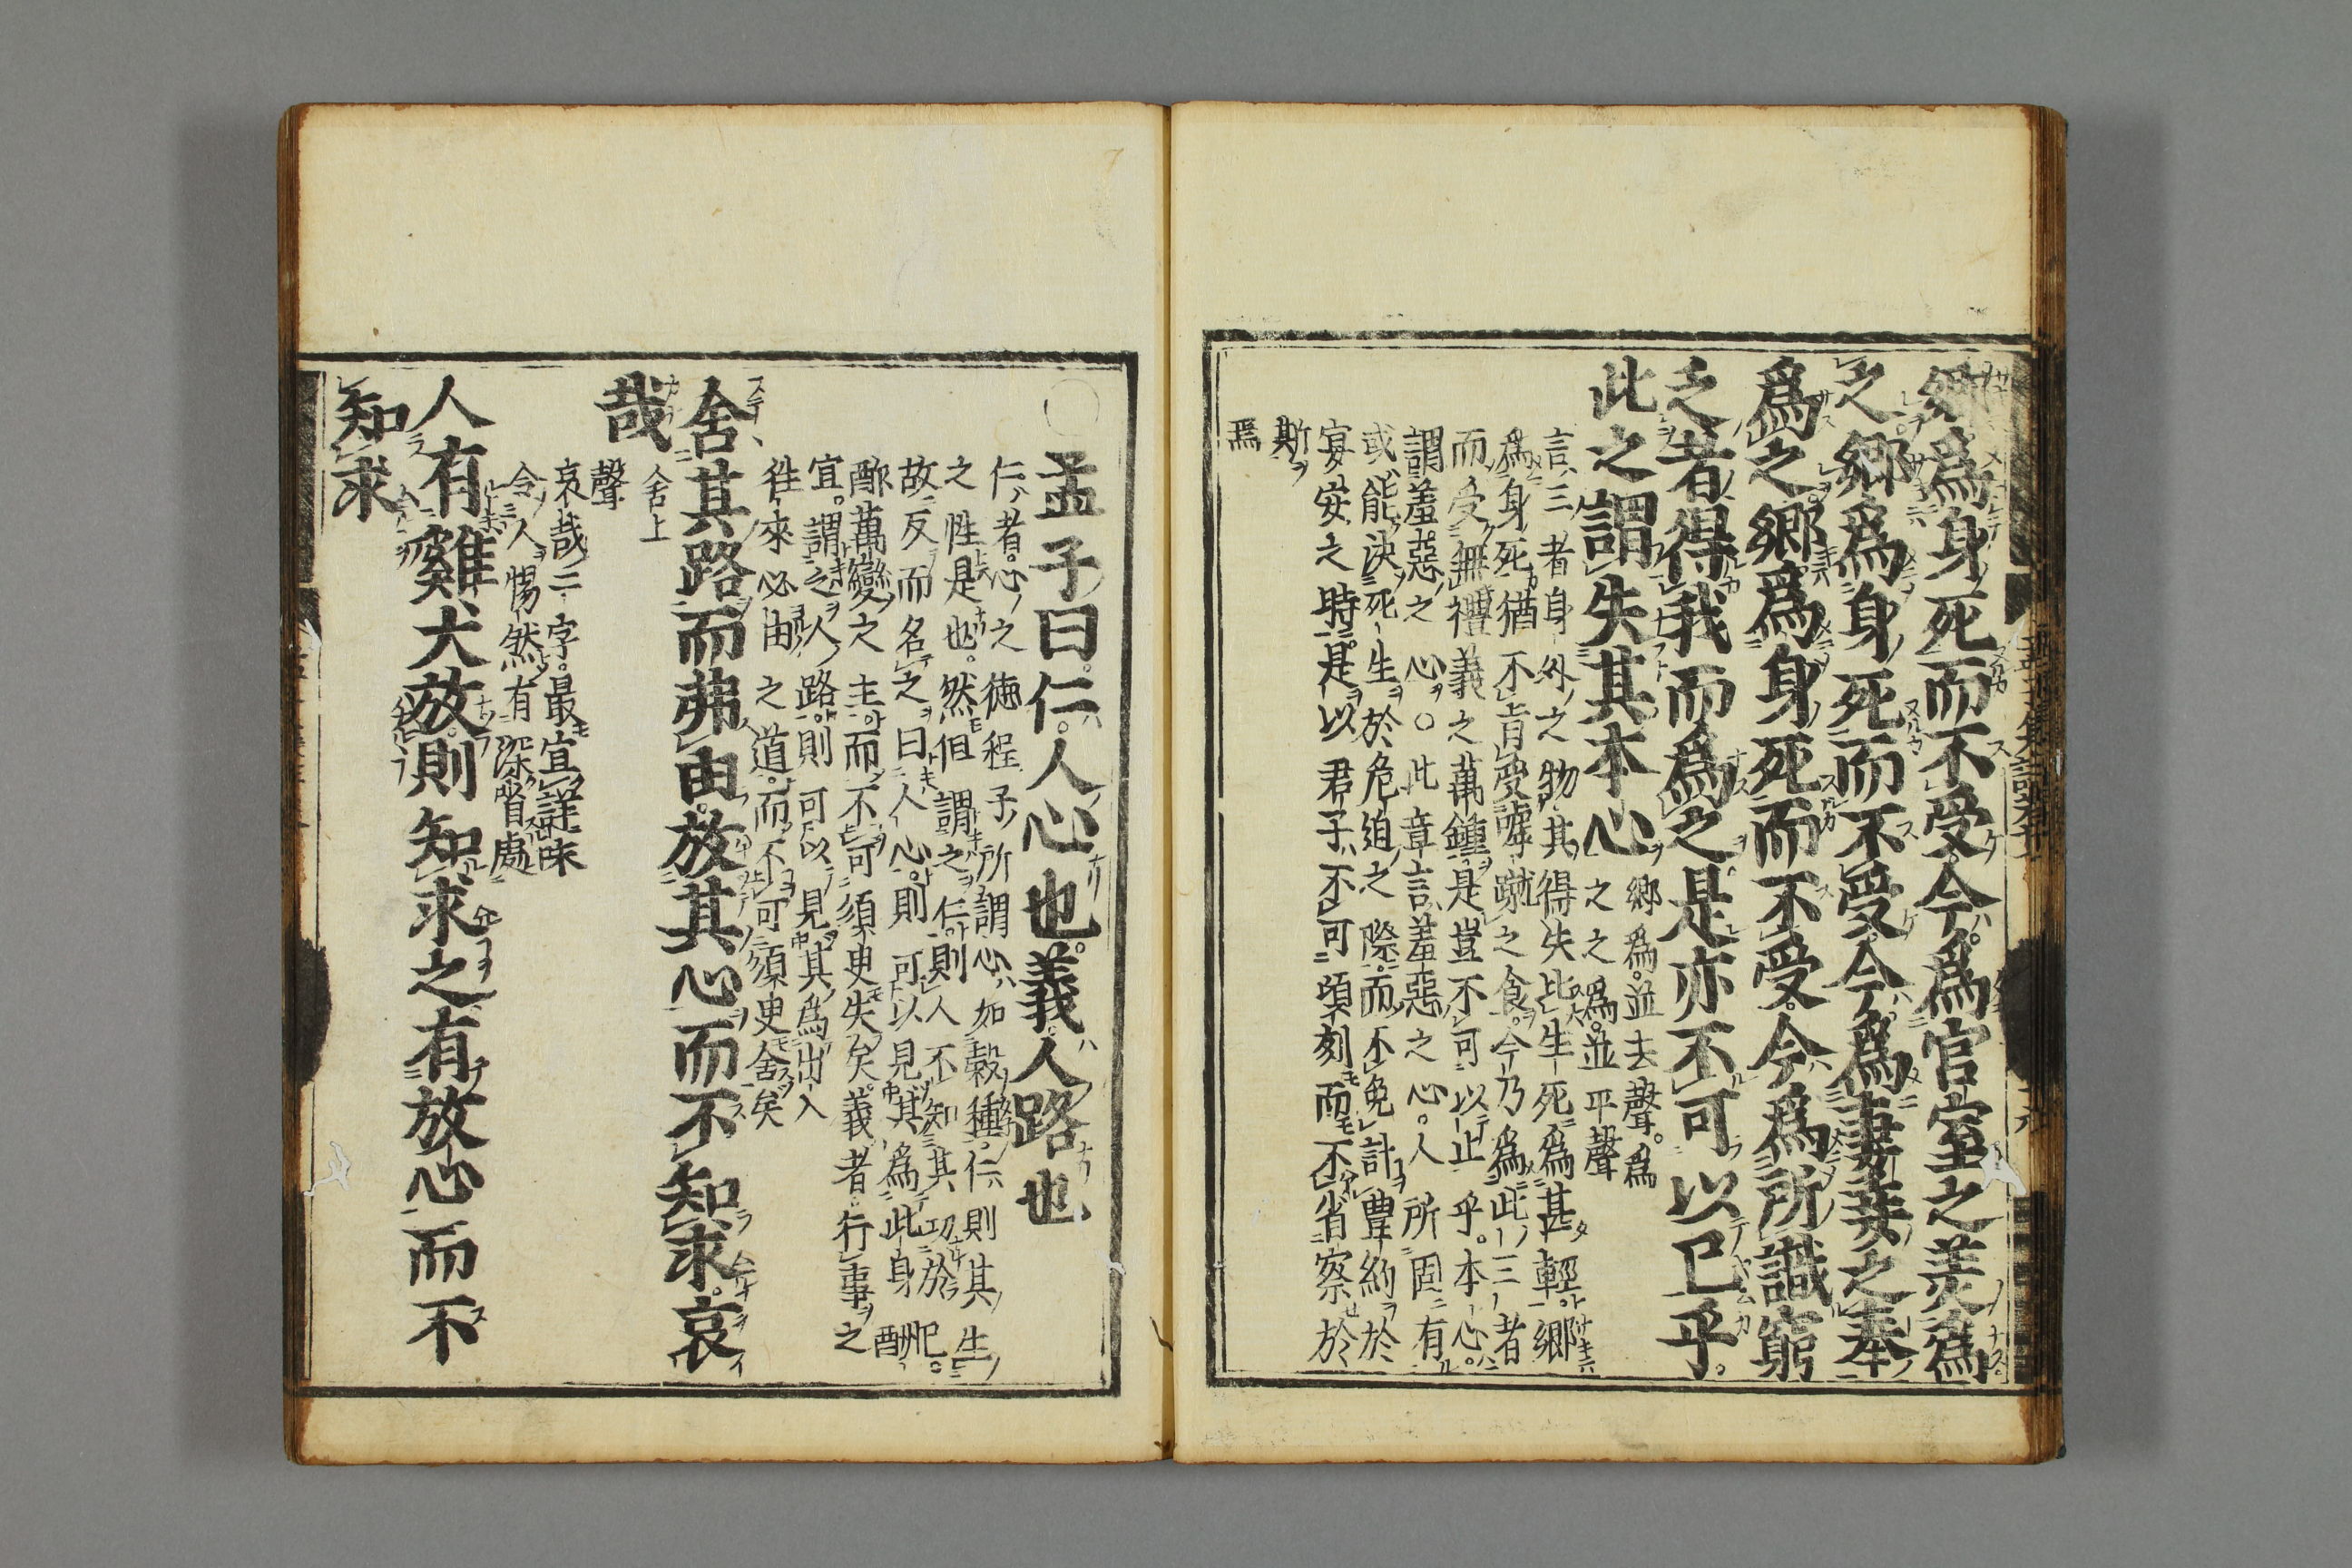 鄉爲身死而不受今爲官室之美爲
之鄉爲身死而不受今爲妻妾之奉
爲之鄉爲身死而不受今爲所識窮
乏者得我而爲之是亦不可以已乎
此之謂失其本心
鄉爲並去聲爲
之之爲並平聲
言三者身外之物其得失比生死爲甚輕鄉
爲身死猶不肯受嘑蹴之食今乃爲此三者
而受無禮義之萬鍾是豈不可以止乎本心
謂羞惡之心○此章言羞惡之心人所固有
或能決死生於危迫之際而不免計豊約於
宴安之時是以君子不可頃刻而不省察於
斯
焉
孟子曰仁人心也義人路也
仁者心之德程子所謂心如穀種仁則其生
之性是也然但謂之仁則人不知其切於己
故反而名之曰人心則可以見其爲此身酬
酢萬變之主而不可須臾失矣義者行事之
宜謂之人路則可以見其爲出入
往來必由之道而不可須臾舍矣
舍其路而弗由放其心而不知求哀
哉
舍上
聲
哀哉二字最宜詳味
令人惕然有深省處
人有雞犬放則知求之有放心而不
知求